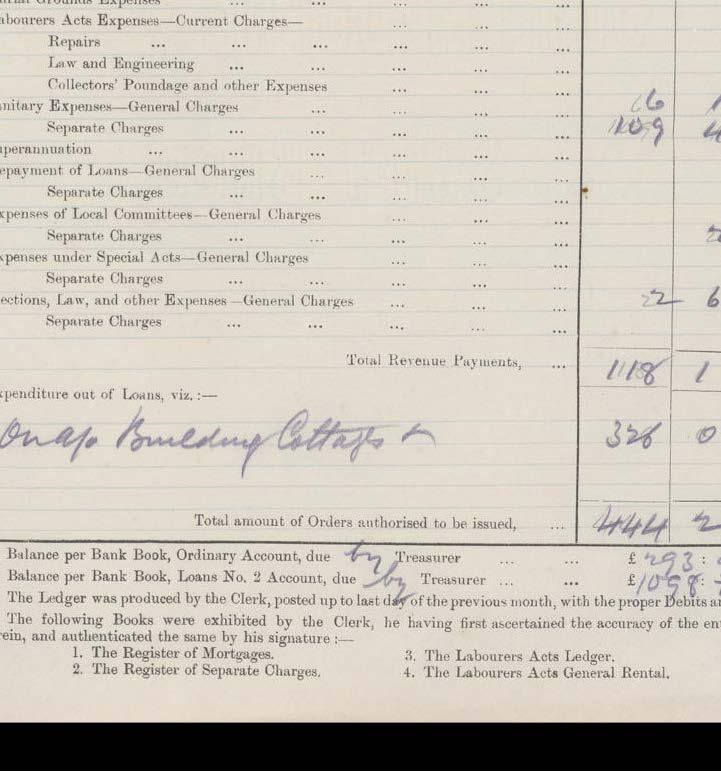 abourers Acts Expenses—Current Charges—
Repairs ... ... ... ... ... ...
Law and Engineering ... ... ... ... ...
Collectors' Poundage and other Expenses ... ... ...
nitary Expenses—General Charges ... ... ... ... 16 1
Separate Charges ... ... ... ... ... 4
uperannuation ... ... ... ... ... ...
epayment of Loans—General Charges ... ... ... ...
Separate Charges ... ... ... ... ...
xpenses of Local Committees—General Charges ... ... ...
Separate Charges ... ... ... ... ...
xpenses under Special Acts—General Charges ... ... ...
Separate Charges ... ... ... ... ...
ections, Law, and other Expenses—General Charges ... ... ... 22 6
Separate Charges ... ... ... ... ...
Total Revenue Payments, ... 1118 1
xpenditure out of Loans, viz. :—
On a/c Building Cottages 326 0
Total amount of Orders authorised to be issued, ... 2
Balance per Bank Book, Ordinary Account, due by Treasurer ... ... £293 :
Balance per Bank Book, Loans No. 2 Account, due by Treasurer ... ... £1098 :
The Ledger was produced by the Clerk, posted up to last day of the previous month, with the proper Debits a
The following Books were exhibited by the Clerk, he having first ascertained the accuracy of the en
rein, and authenticated the same by his signature :—
1. The Register of Mortgages. 3. The Labourers Acts Ledger.
2. The Register of Separate Charges. 4. The Labourers Acts General Rental.